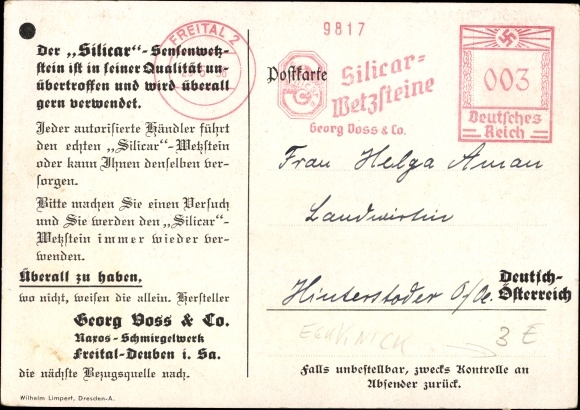 Der „Silicar“-Sensenwetz-
stein ist in seiner Qualität un-
übertroffen und wird überall
gern verwendet.
Jeder autorisierte Händler führt
den echten „Silicar“-Wetzstein
oder kann Ihnen denselben ver-
sorgen.
Bitte machen Sie einen Versuch
und Sie werden den „Silicar“-
Wetzstein immer wieder ver-
wenden.
Überall zu haben,
wo nicht, weisen die allein. Hersteller
Georg Voss & Co.
Naxos-Schmirgelwerk
Freital-Deuben i. Sa.
die nächste Bezugsquelle nach.
Wilhelm Limpert, Dresden-A.
FREITAL 2
9817
Postkarte
Silicar=
Wetzsteine
Georg Voss & Co.
003
Deutsches
Reich
Frau Helga Aman
Landwirtin
Hinterstoder O/Oe.
Deutsch-
Österreich
3 E
Falls unbestellbar, zwecks Kontrolle an
Absender zurück.